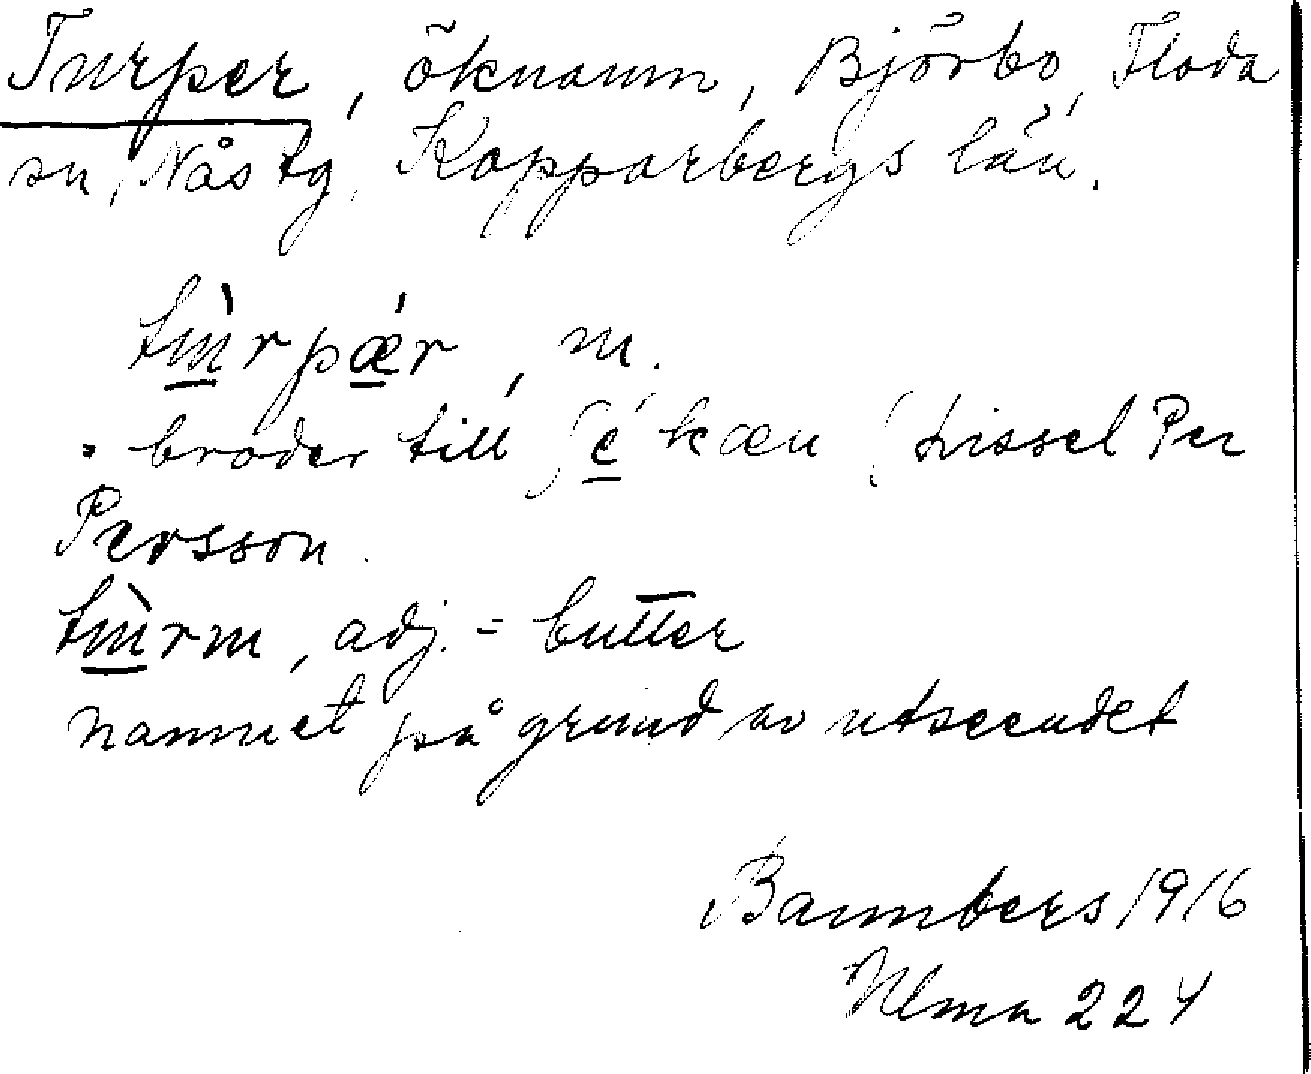 Turper, öknamn, Björbo, Floda
sn, Nås tg, Kopparbergs län.
tɯ̀rpǽr, m.
= broder till ʃékæn (Lissel Per
Persson.
tɯ̀rm, adj. = butter
namnet på grund av utseendet
Bannbers 1916
Ulma 224